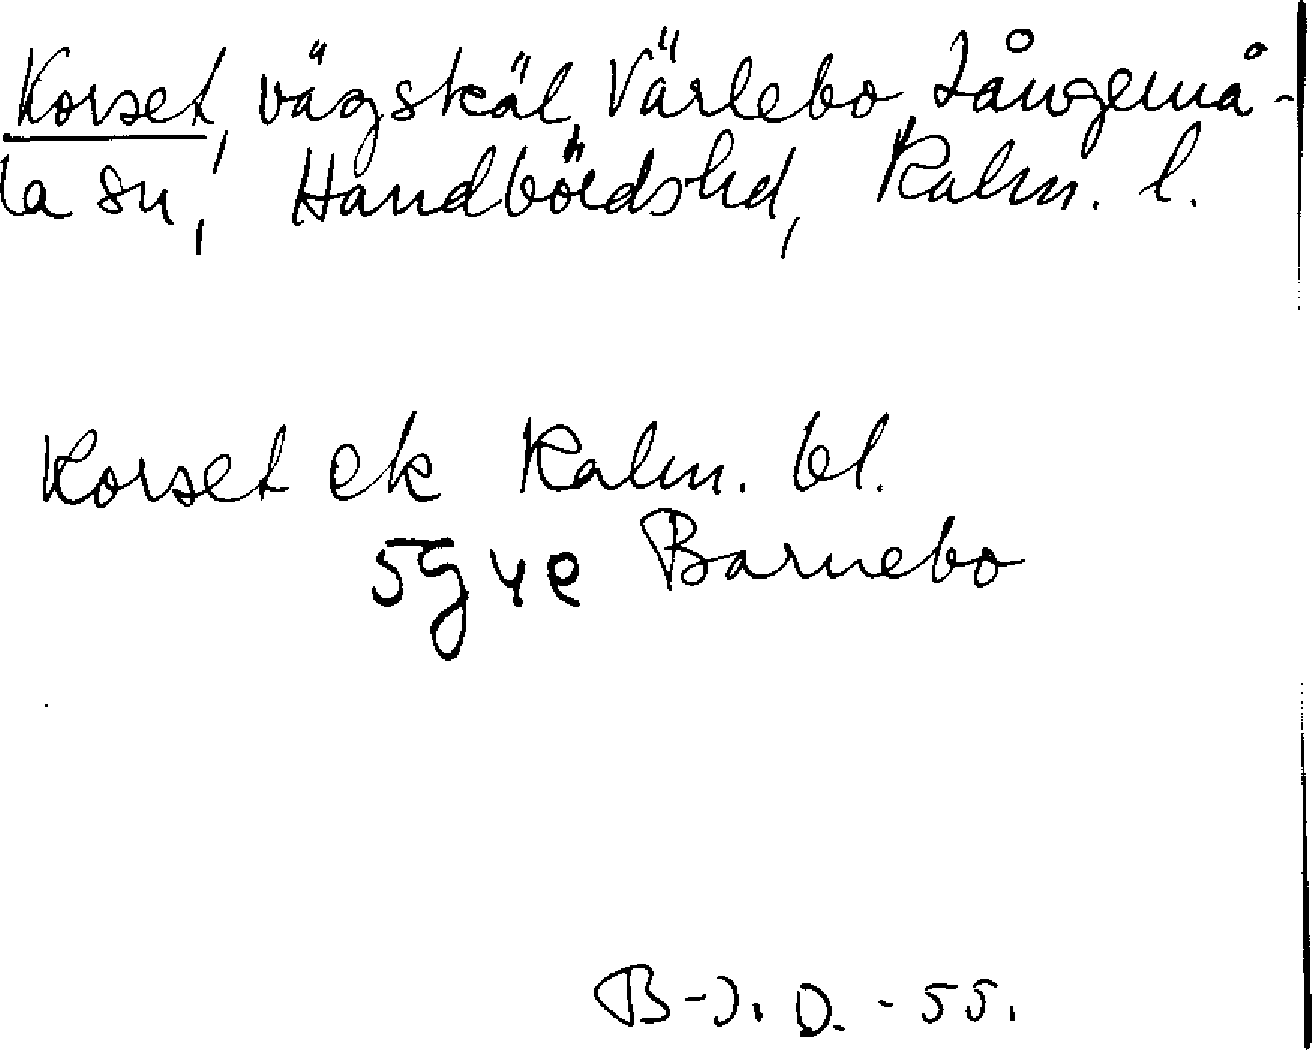 Korset, vägskäl, Värlebo, Långemå-
la sn, Handbördshd, Kalm. l.
Korset ek Kalm. bl.
5g 4e Barnebo
B-J. D. -55.